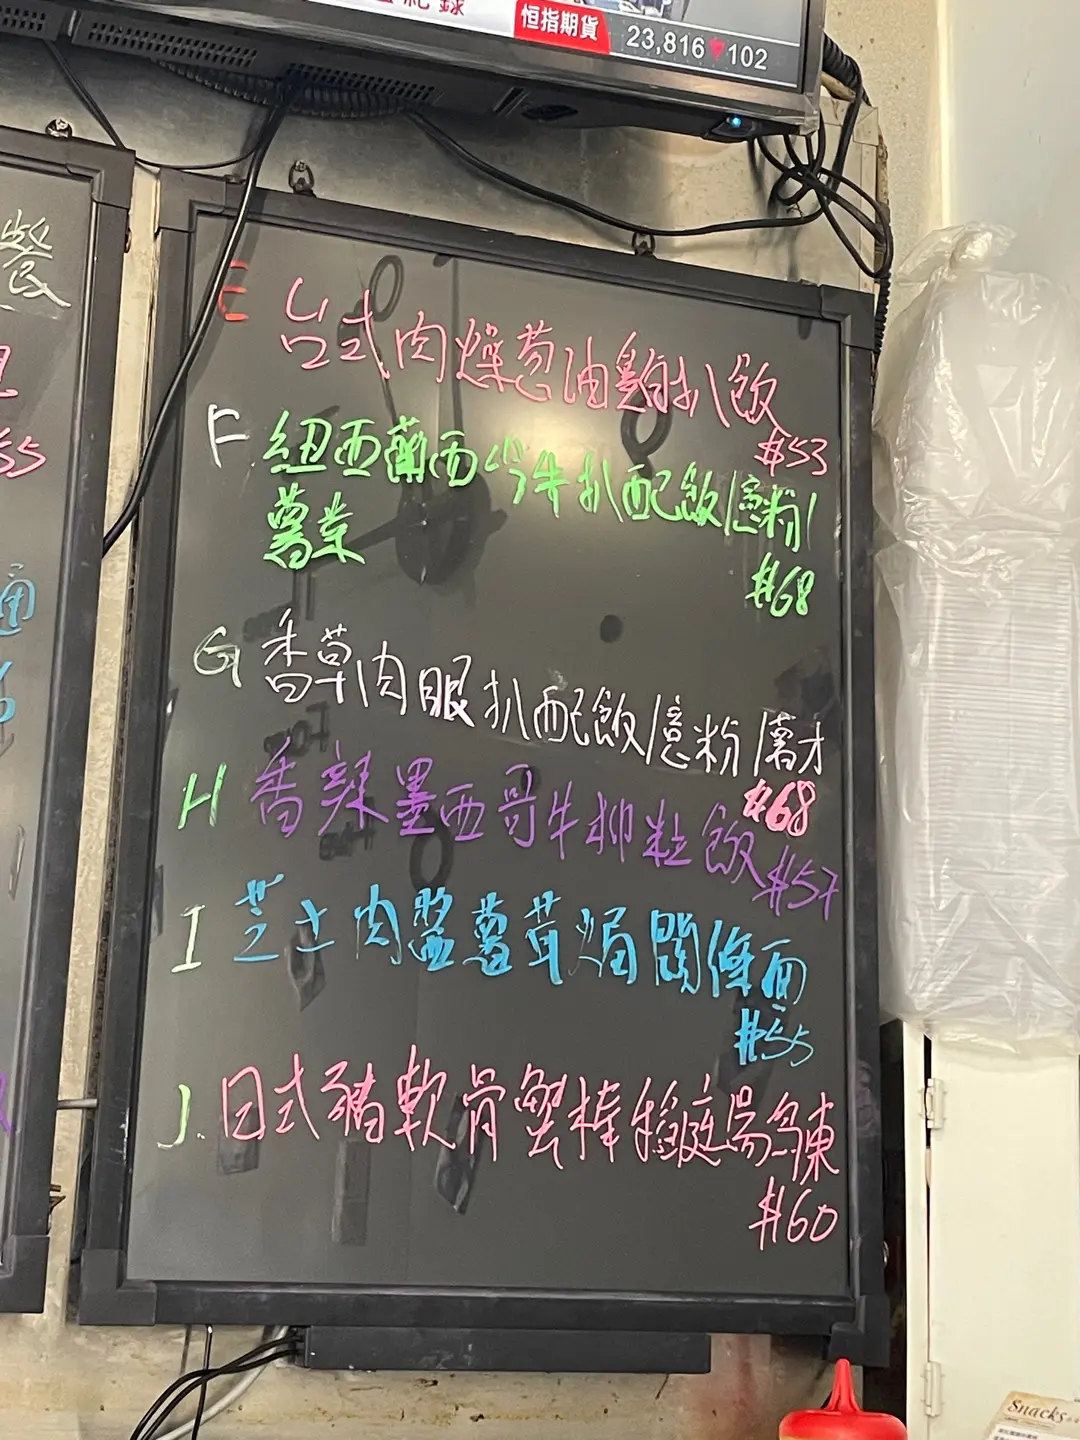 紀錄
恒指期貨 23,816 102
餐
55
E 台式肉燥葱油雞扒飯
$53
F 紐西蘭西冷牛扒配飯/意粉/
薯菜
$68
G 香草肉眼扒配飯/意粉/薯才
$68
H 香辣墨西哥牛柳粒飯 $57
I 芝士肉醬薯茸焗闊條面
$55
J. 日式豬軟骨蟹棒稻庭湯烏冬
$60
Snacks